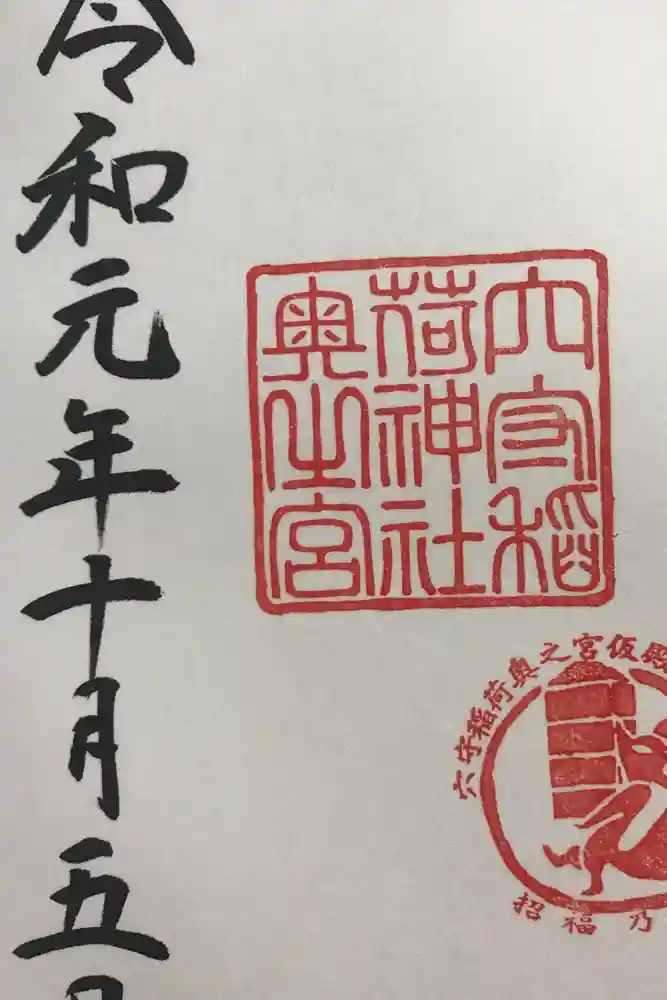 六守稲
荷神社
奥之宮
六守稲荷奥之宮仮殿
招福乃
令和元年十月五日